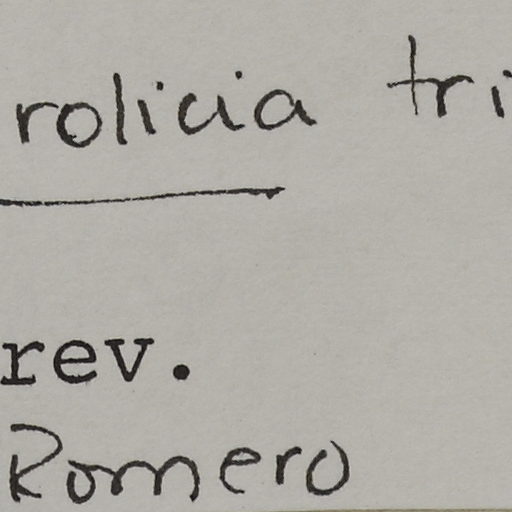 rolicia tri
rev.
Romero